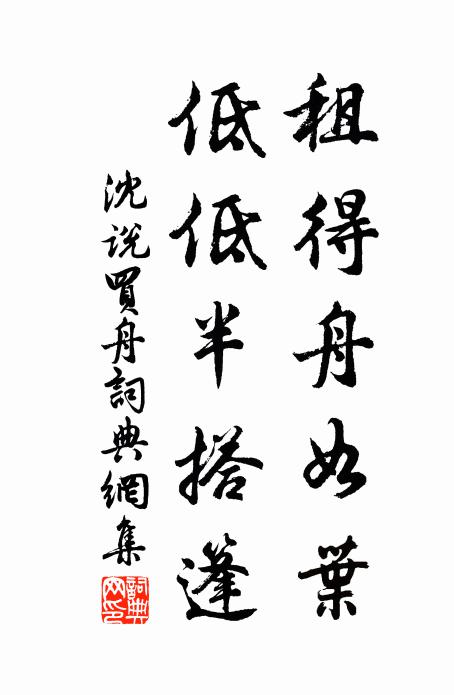 租得舟如葉
低低半搭篷
沈說買舟詞典網集
詞典網印